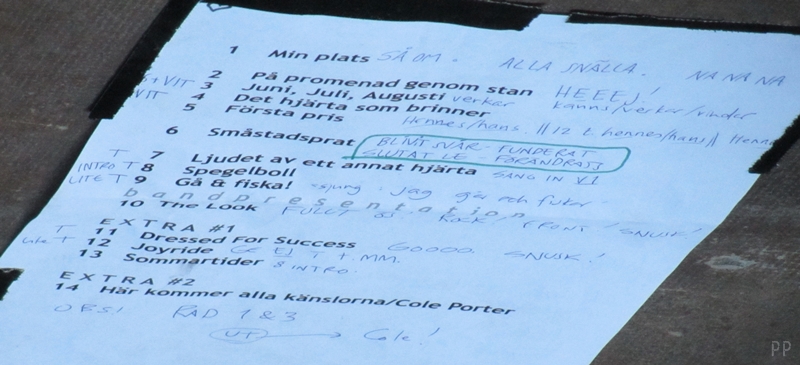 1 Min plats SÅ OM. ALLA SNÄLLA. NA NA NA
2 På promenad genom stan HEEEJ!
+ VIT 3 Juni, Juli, Augusti verkar känns/verkar/vinder
VIT 4 Det hjärta som brinner
5 Första pris Hennes/hans. 12 t hennes/hans
6 Småstadsprat BLIVIT SVÅR - FUNDERAT
SLUTAT LE - FÖRÄNDRATS
T 7 Ljudet av ett annat hjärta SANG IN V1
INTRO T 8 Spegelboll
LITE T 9 Gå & fiska! - sjung - jag går och fiskar -
bandpresentation
10 The Look FULLT ROCK FRONT! SNUSK!
EXTRA #1
T 11 Dressed For Success GOOOO. SNUSK!
T 12 Joyride EJ T + MM.
13 Sommartider INTRO.
EXTRA #2
14 Här kommer alla känslorna/Cole Porter
OBS! RAD 1 & 3
UT Cole!